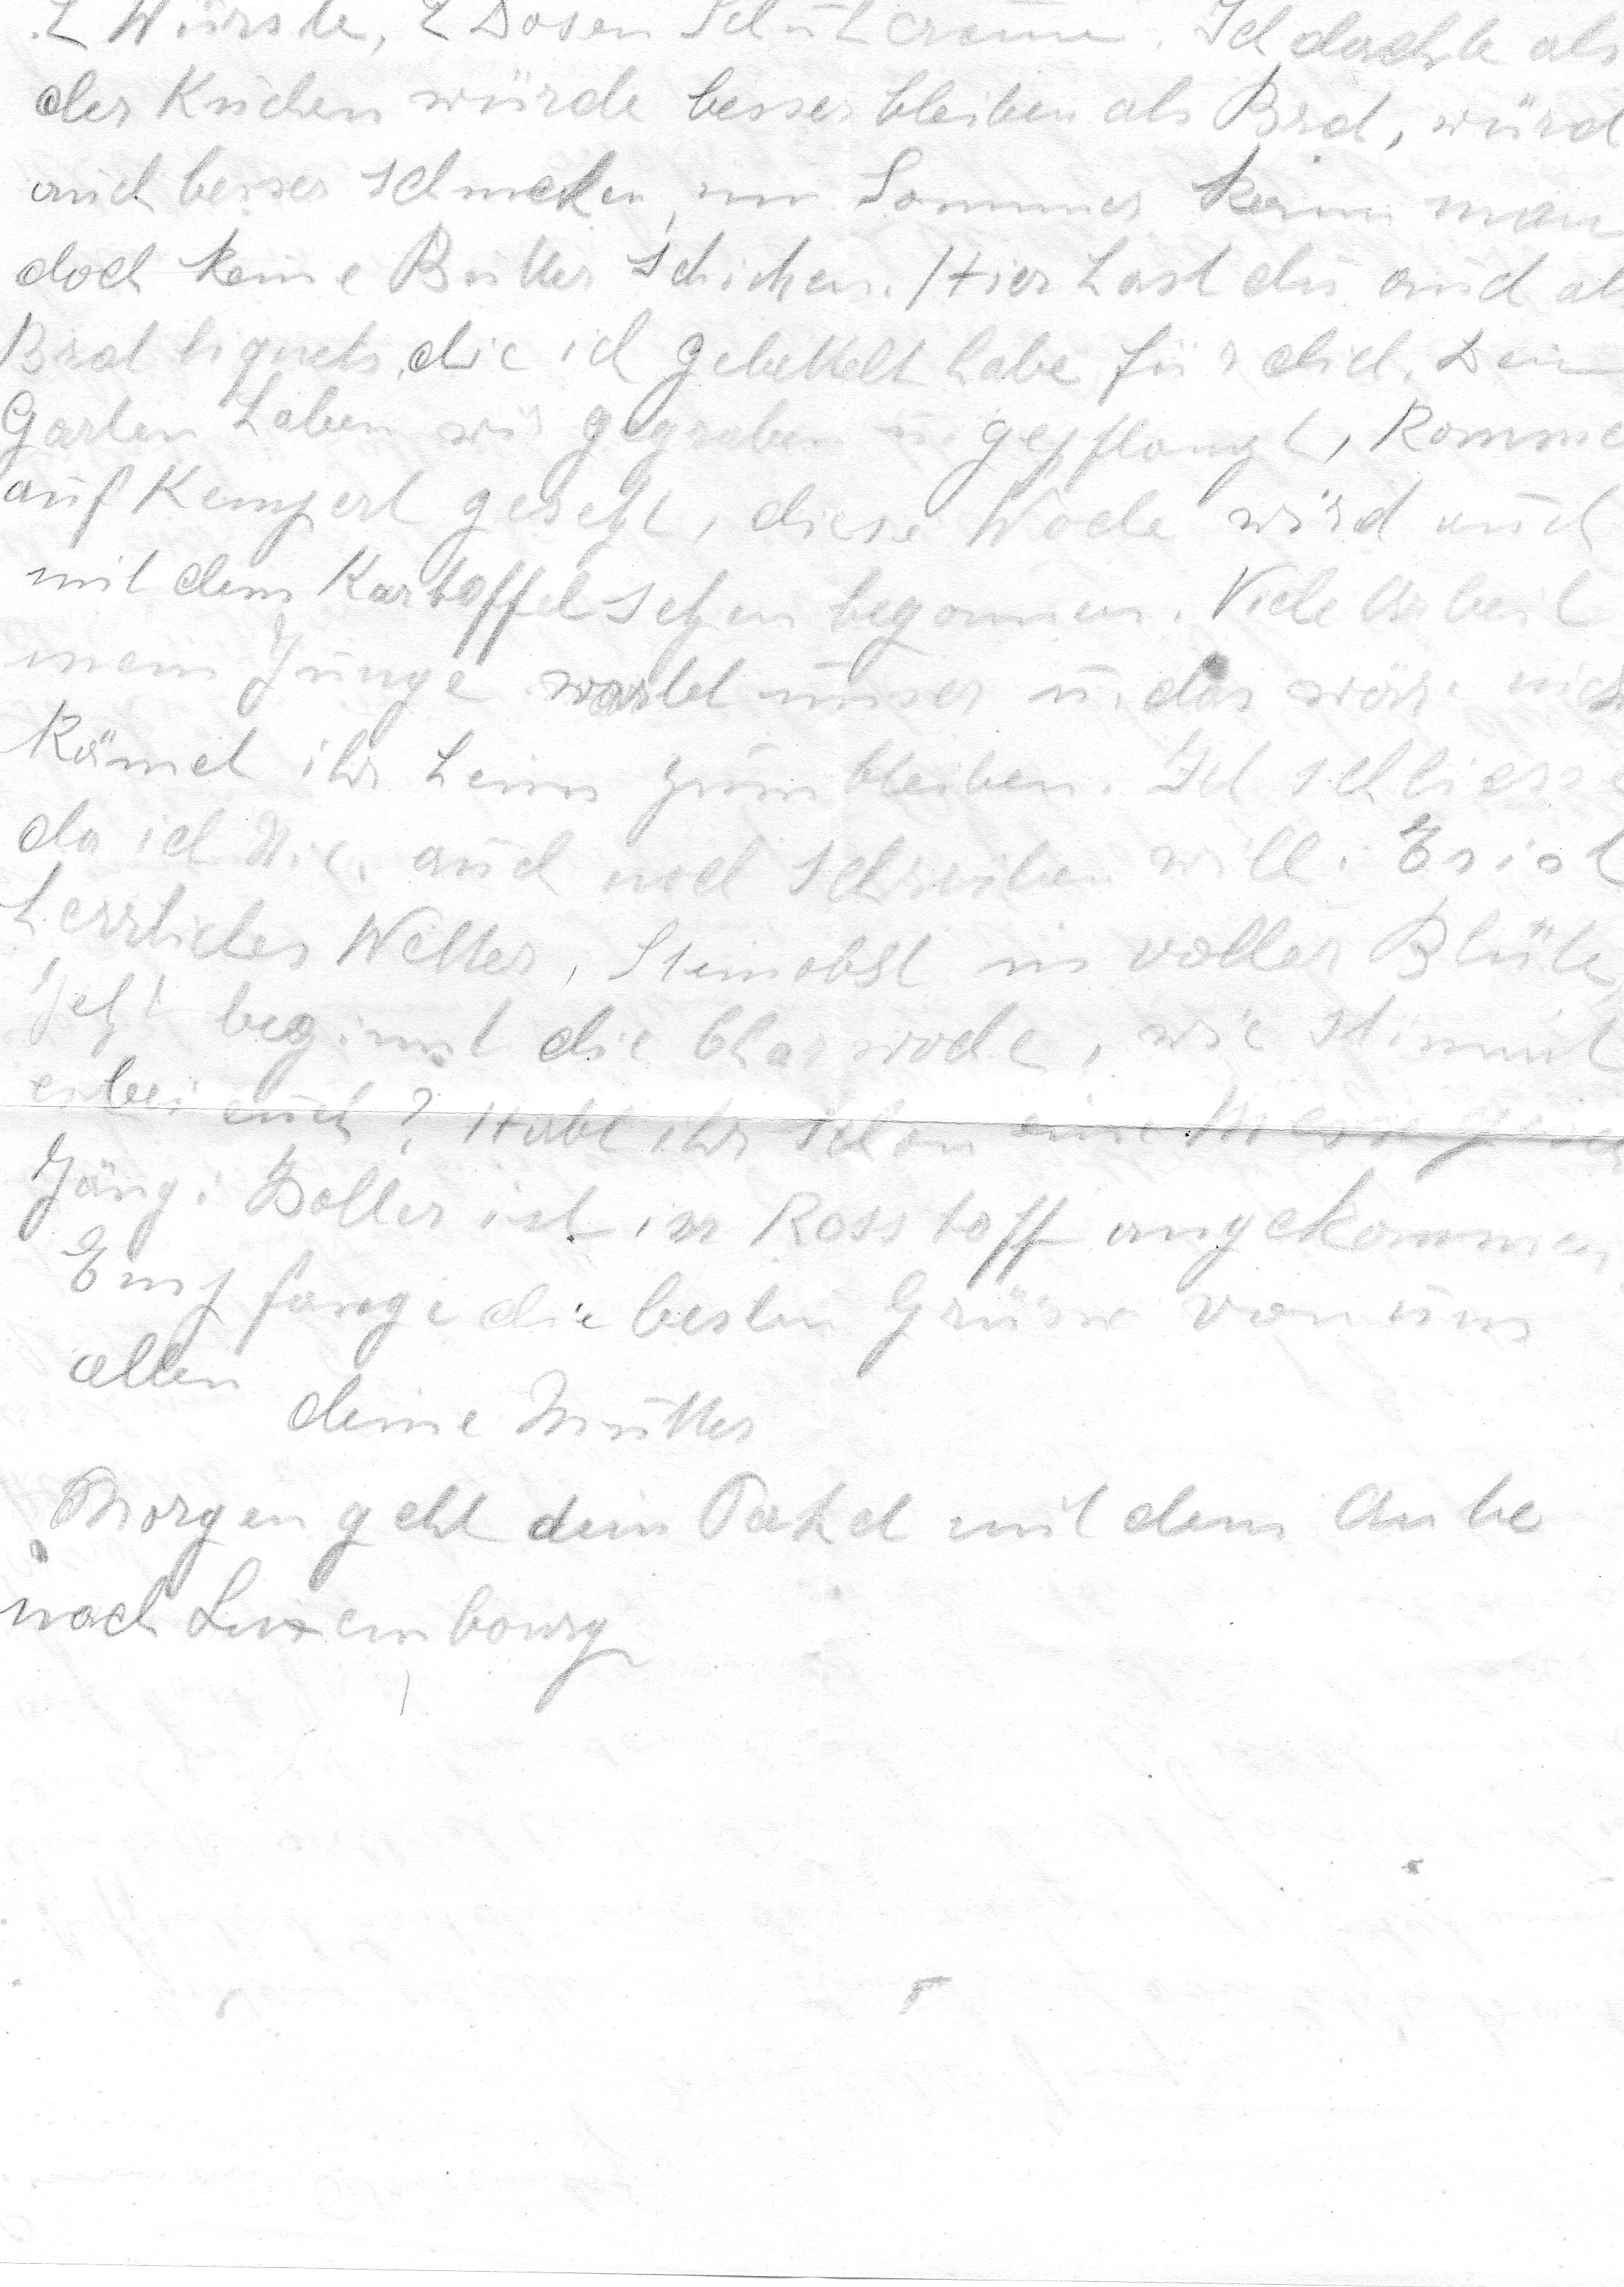 2 Würste, 2 Dosen Schuhcreme. Ich dachte als
der Kuchen würde besser bleiben als Brod, würd
auch besser schmeken, im Sommer kann man
doch keine Butter schicken. Hier hast du auch al
Brod die ich gebettelt habe für dich. Dein
Garten haben wir gegraben u. gepflanzt, Romme
auf Kempert gesetzt, diese Woche wird auch
mit dem Kartoffelsetzen begonnen. Viele Arbeit
mein Junge wartet unser u. das wäre nich
Kämet ihr heim zum bleiben. Ich schliesse
da ich Nic. auch noch schreiben will. Es ist
herrliches Wetter, Steinobst in voller Blüte,
Jetzt beginnt die Charwoche, wie stimmt
es bei euch? Habt ihr schon eine Messe
Jängi Boller ist in Rosstoff angekommen,
Empfange die besten Grüsse von uns
allen
deine Mutter
Morgen geht dein mit dem Auto
nach Luxembourg